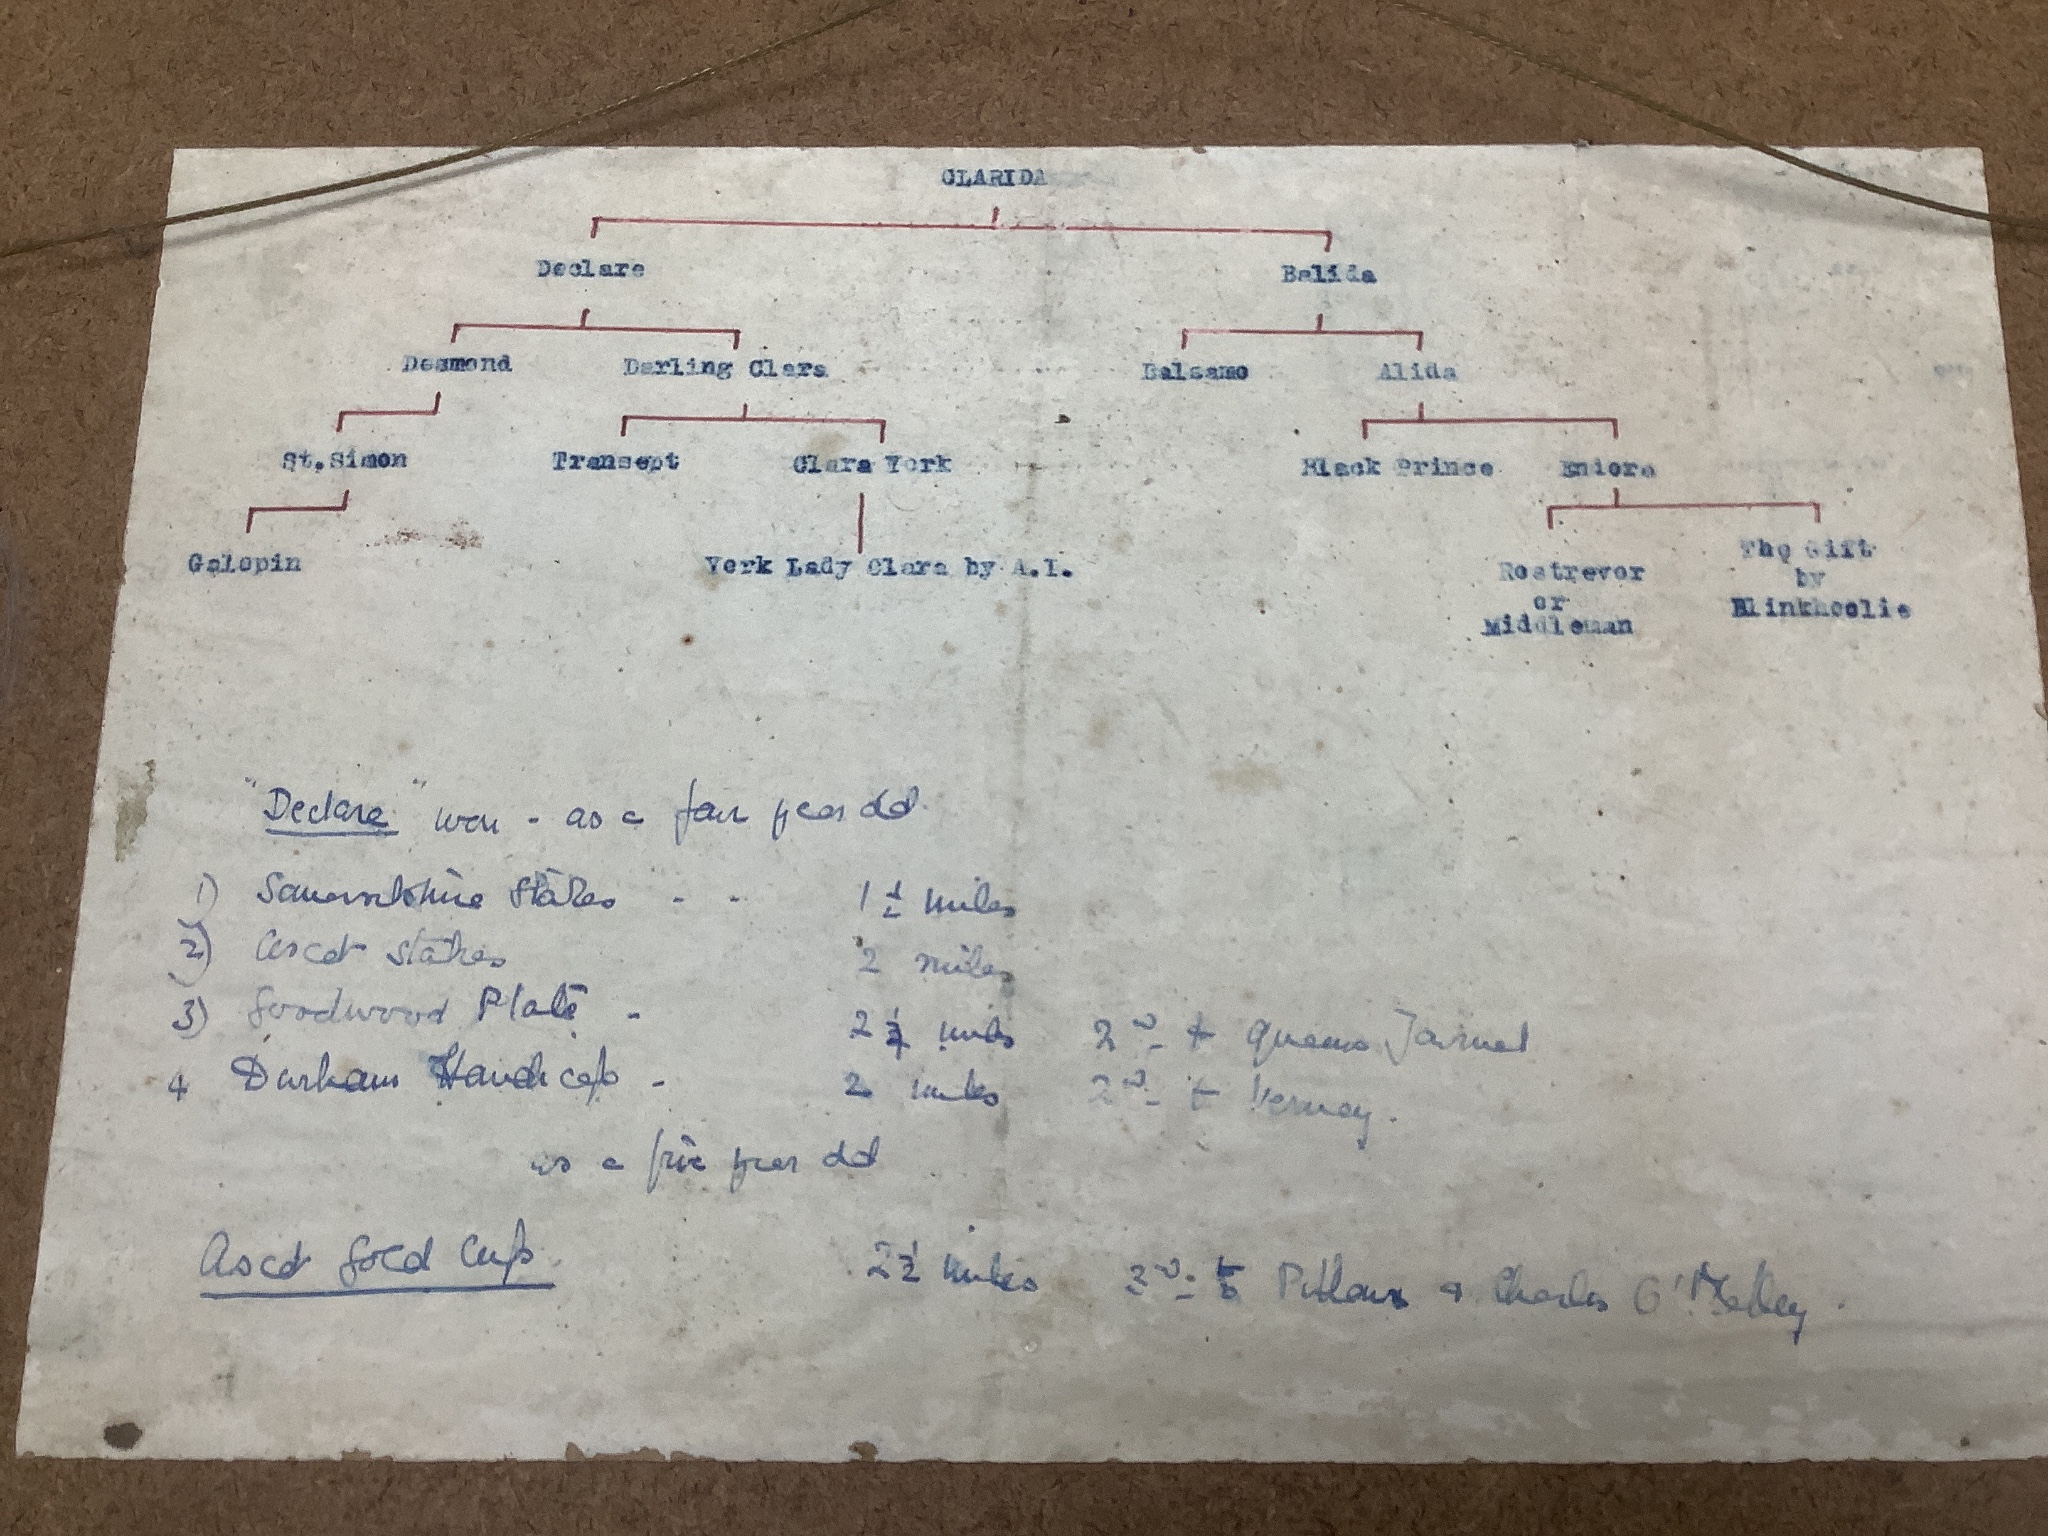 CLARIDA
Declare Balida
Desmond Darling Clara Balsamo Alida
St. Simon Transept Clara York Black Prince Eniora
Galopin York Lady Clara by A.I. Rostrevor or Middleman The Gift by Blinkhoolie
"Declare" won - as a four year old
1) Stakes - - 1½ miles
2) Ascot Stakes 2 miles
3) Goodwood Plate - 2 miles 2nd to Queens Journal
4 Durham Handicap - 2 miles 2nd to Verney.
as a five year old
Ascot Gold Cup 2½ miles to & Charles O'Malley.